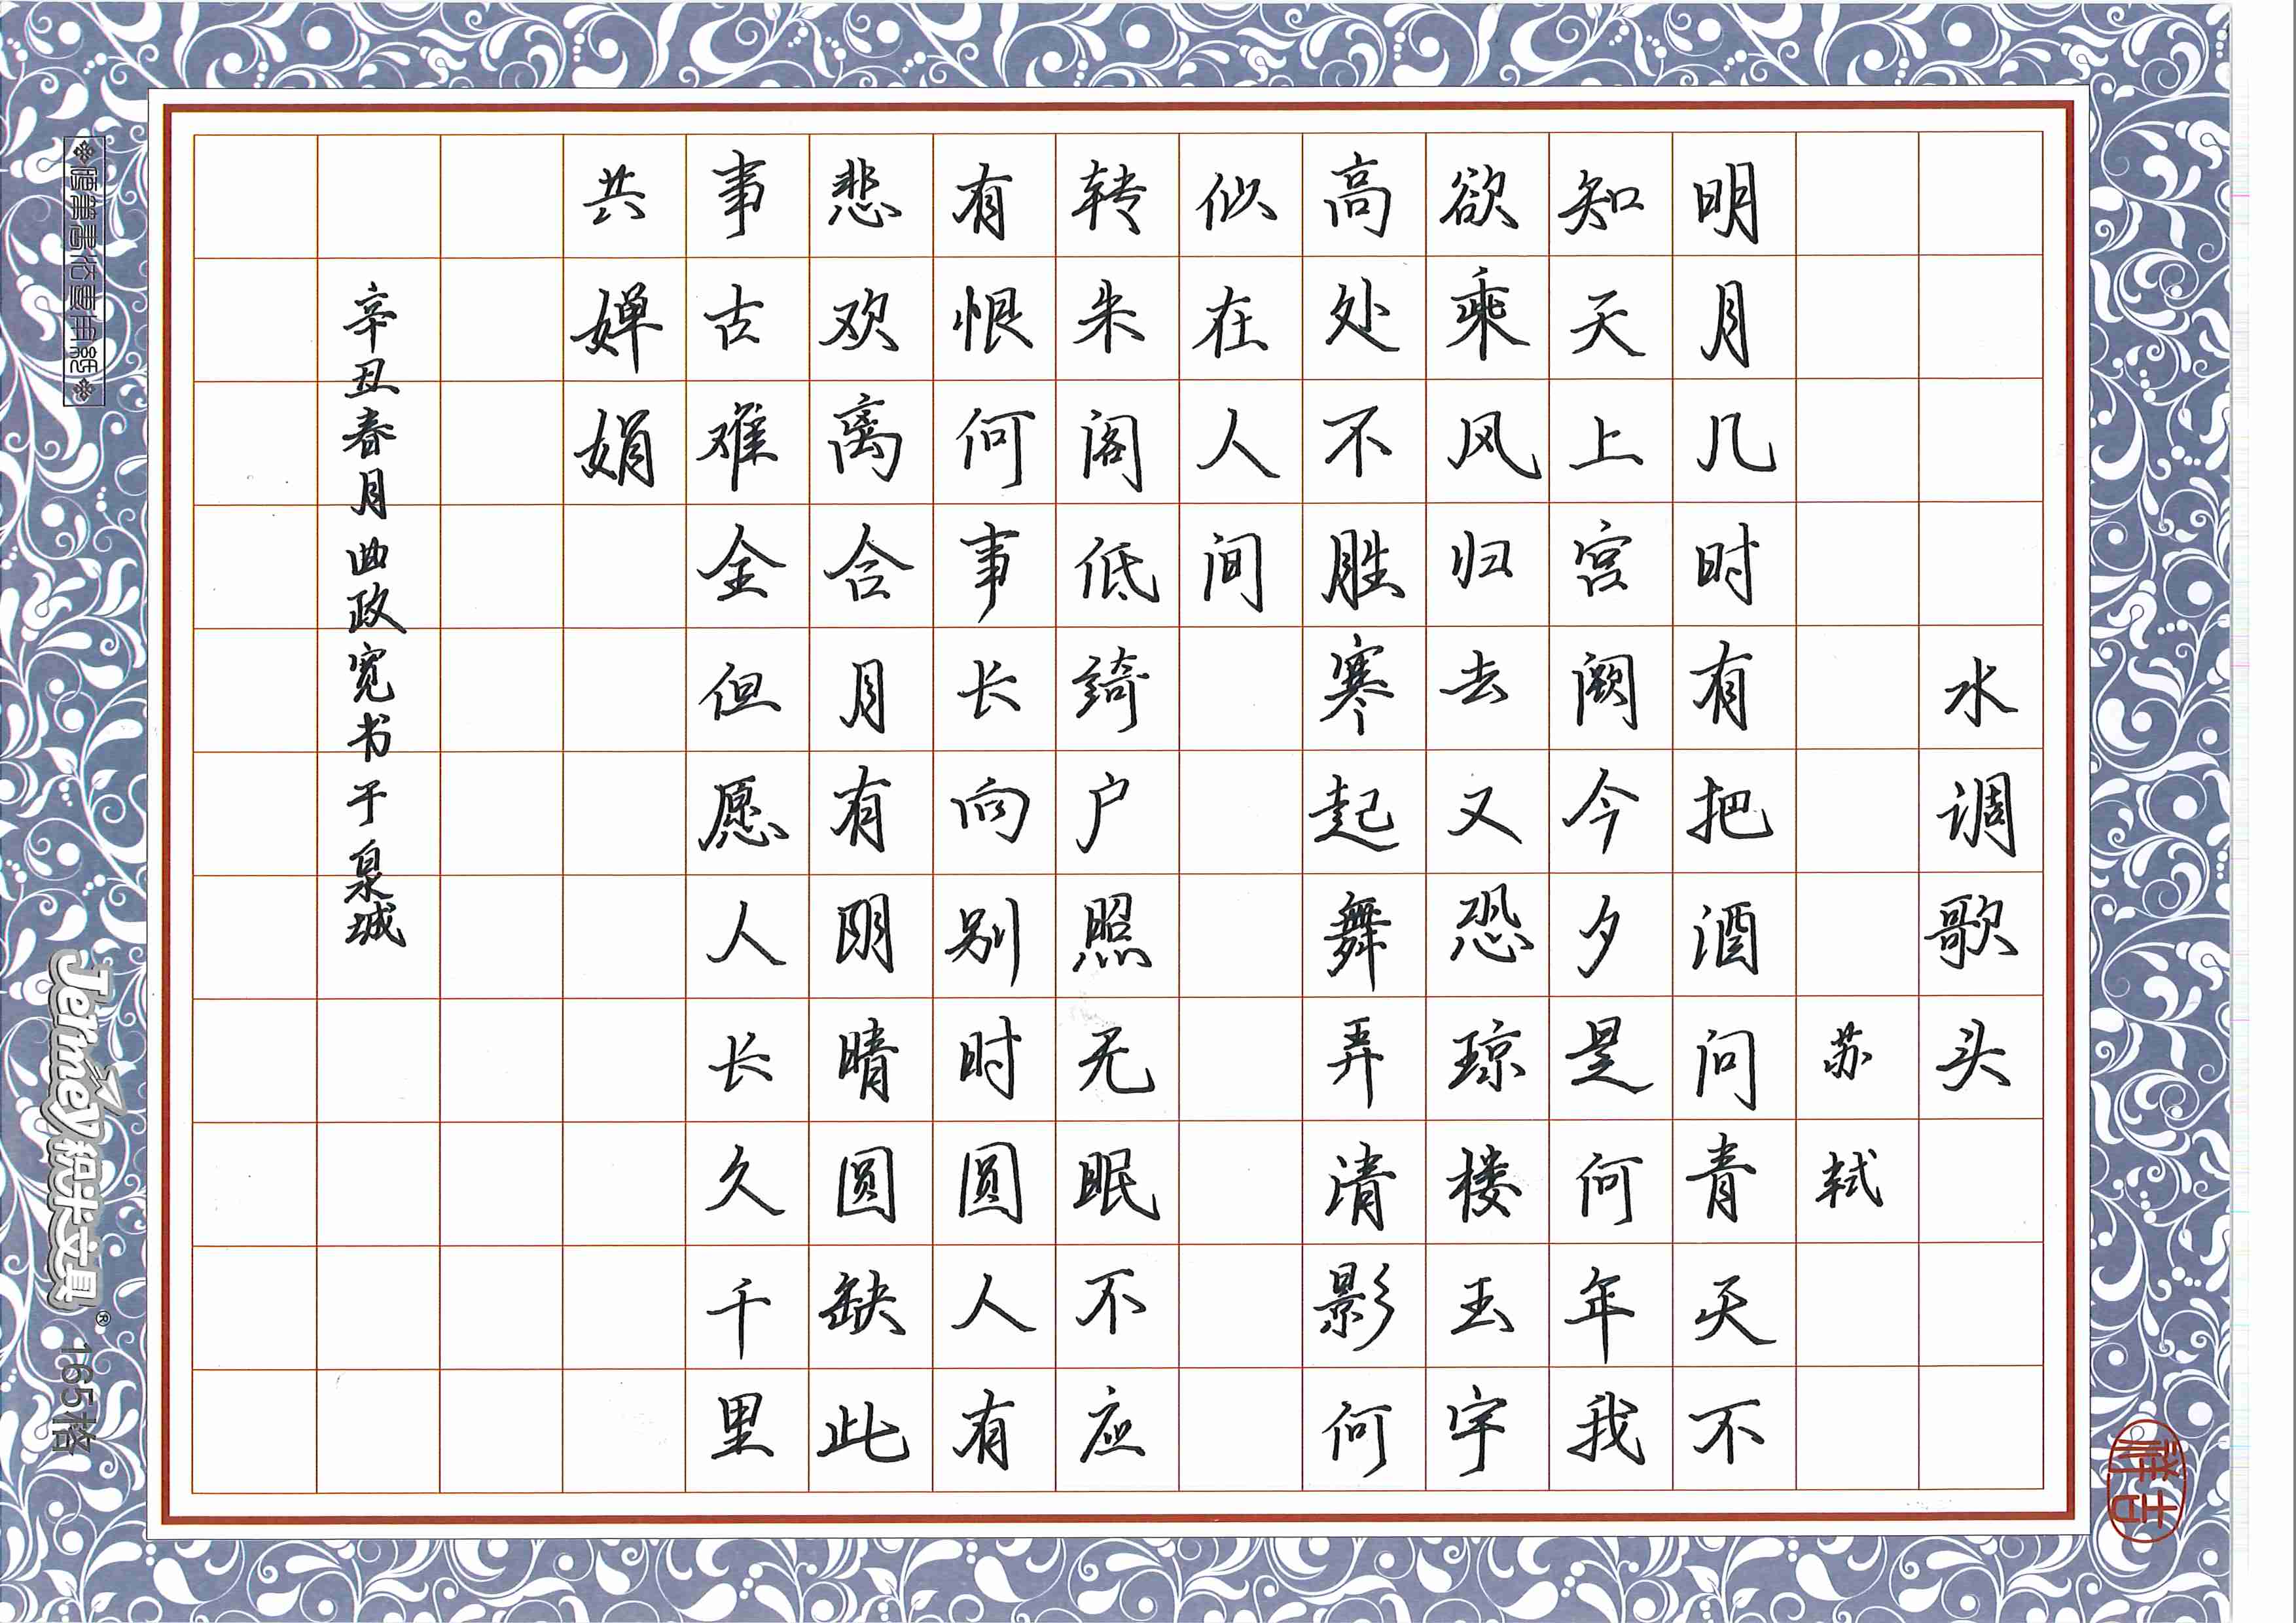 水调歌头
苏轼
明月几时有把酒问青天不
知天上宫阙今夕是何年我
欲乘风归去又恐琼楼玉宇
高处不胜寒起舞弄清影何
似在人间
转朱阁低绮户照无眠不应
有恨何事长向别时圆人有
悲欢离合月有阴晴圆缺此
事古难全但愿人长久千里
共婵娟
辛丑春月曲政宽书于泉城
硬笔书法专用纸
Jermey 积米文具® 165格
祥吉